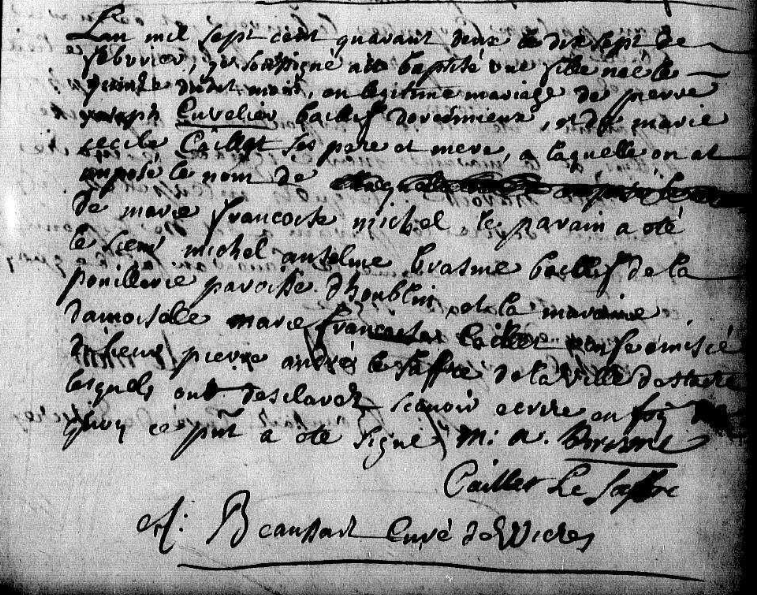 Lan mil sept cent quarant deux le dix sept de
febvrier, je soussigné aÿ baptisé une fille née le
quinze dudit mois, en legitime mariage de pierre
joseph Cuvelier baillif dordimieux, et de marie
cecile Caillet ses pere et mere, a laquelle on at
imposé le nom de
de marie francoise michel le parain a été
le sieur michel anselme brasme baillif de la
pouillerie paroisse dhoublin et la maraine
damoiselle marie francoise Caillet
sieur pierre andré le saffre de la ville destaire
lesquels ont desclarez scavoir ecrire en foÿ
quoy ce pñt a été signé m: a. Brasme
Caillet Le Saffre
Beaussart Curé de Wicres